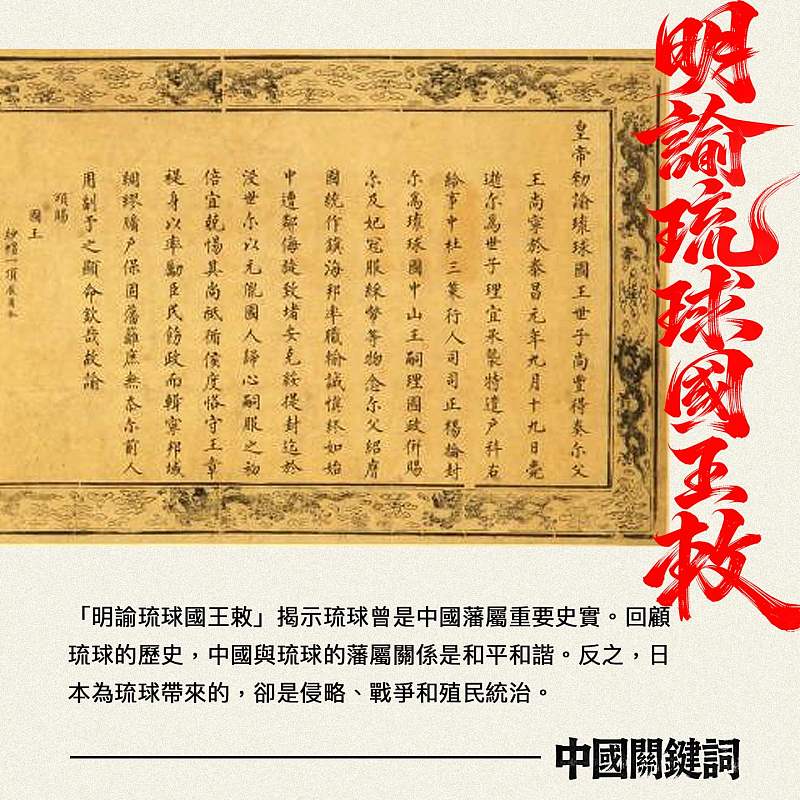 明諭琉球國王敕
皇帝勅諭琉球國王世子尚豐得奏尔父
王尚寧於泰昌元年九月十九日薨
逝尔為世子理宜承襲特遣户科右
給事中杜三策行人司司正楊掄封
尔為琉球國中山王嗣理國政併賜
尔及妃冠服綵幣等物念尔父紹膺
國統作鎮海邦率職輸誠慎終如始
中遭鄰侮旋致堵安克綏提封迄於
浸世尔以元胤國人歸心嗣服之初
倍宜兢惕其尚祗循侯度恪守王章
禔身以率勵臣民飭政而輯寧邦域
綢繆牖户保固藩籬庶無忝尔前人
用副予之顯命欽哉故諭
頒賜
國王
紗帽一頂
「明諭琉球國王敕」揭示琉球曾是中國藩屬重要史實。回顧
琉球的歷史，中國與琉球的藩屬關係是和平和諧。反之，日
本為琉球帶來的，卻是侵略、戰爭和殖民統治。
中國關鍵詞